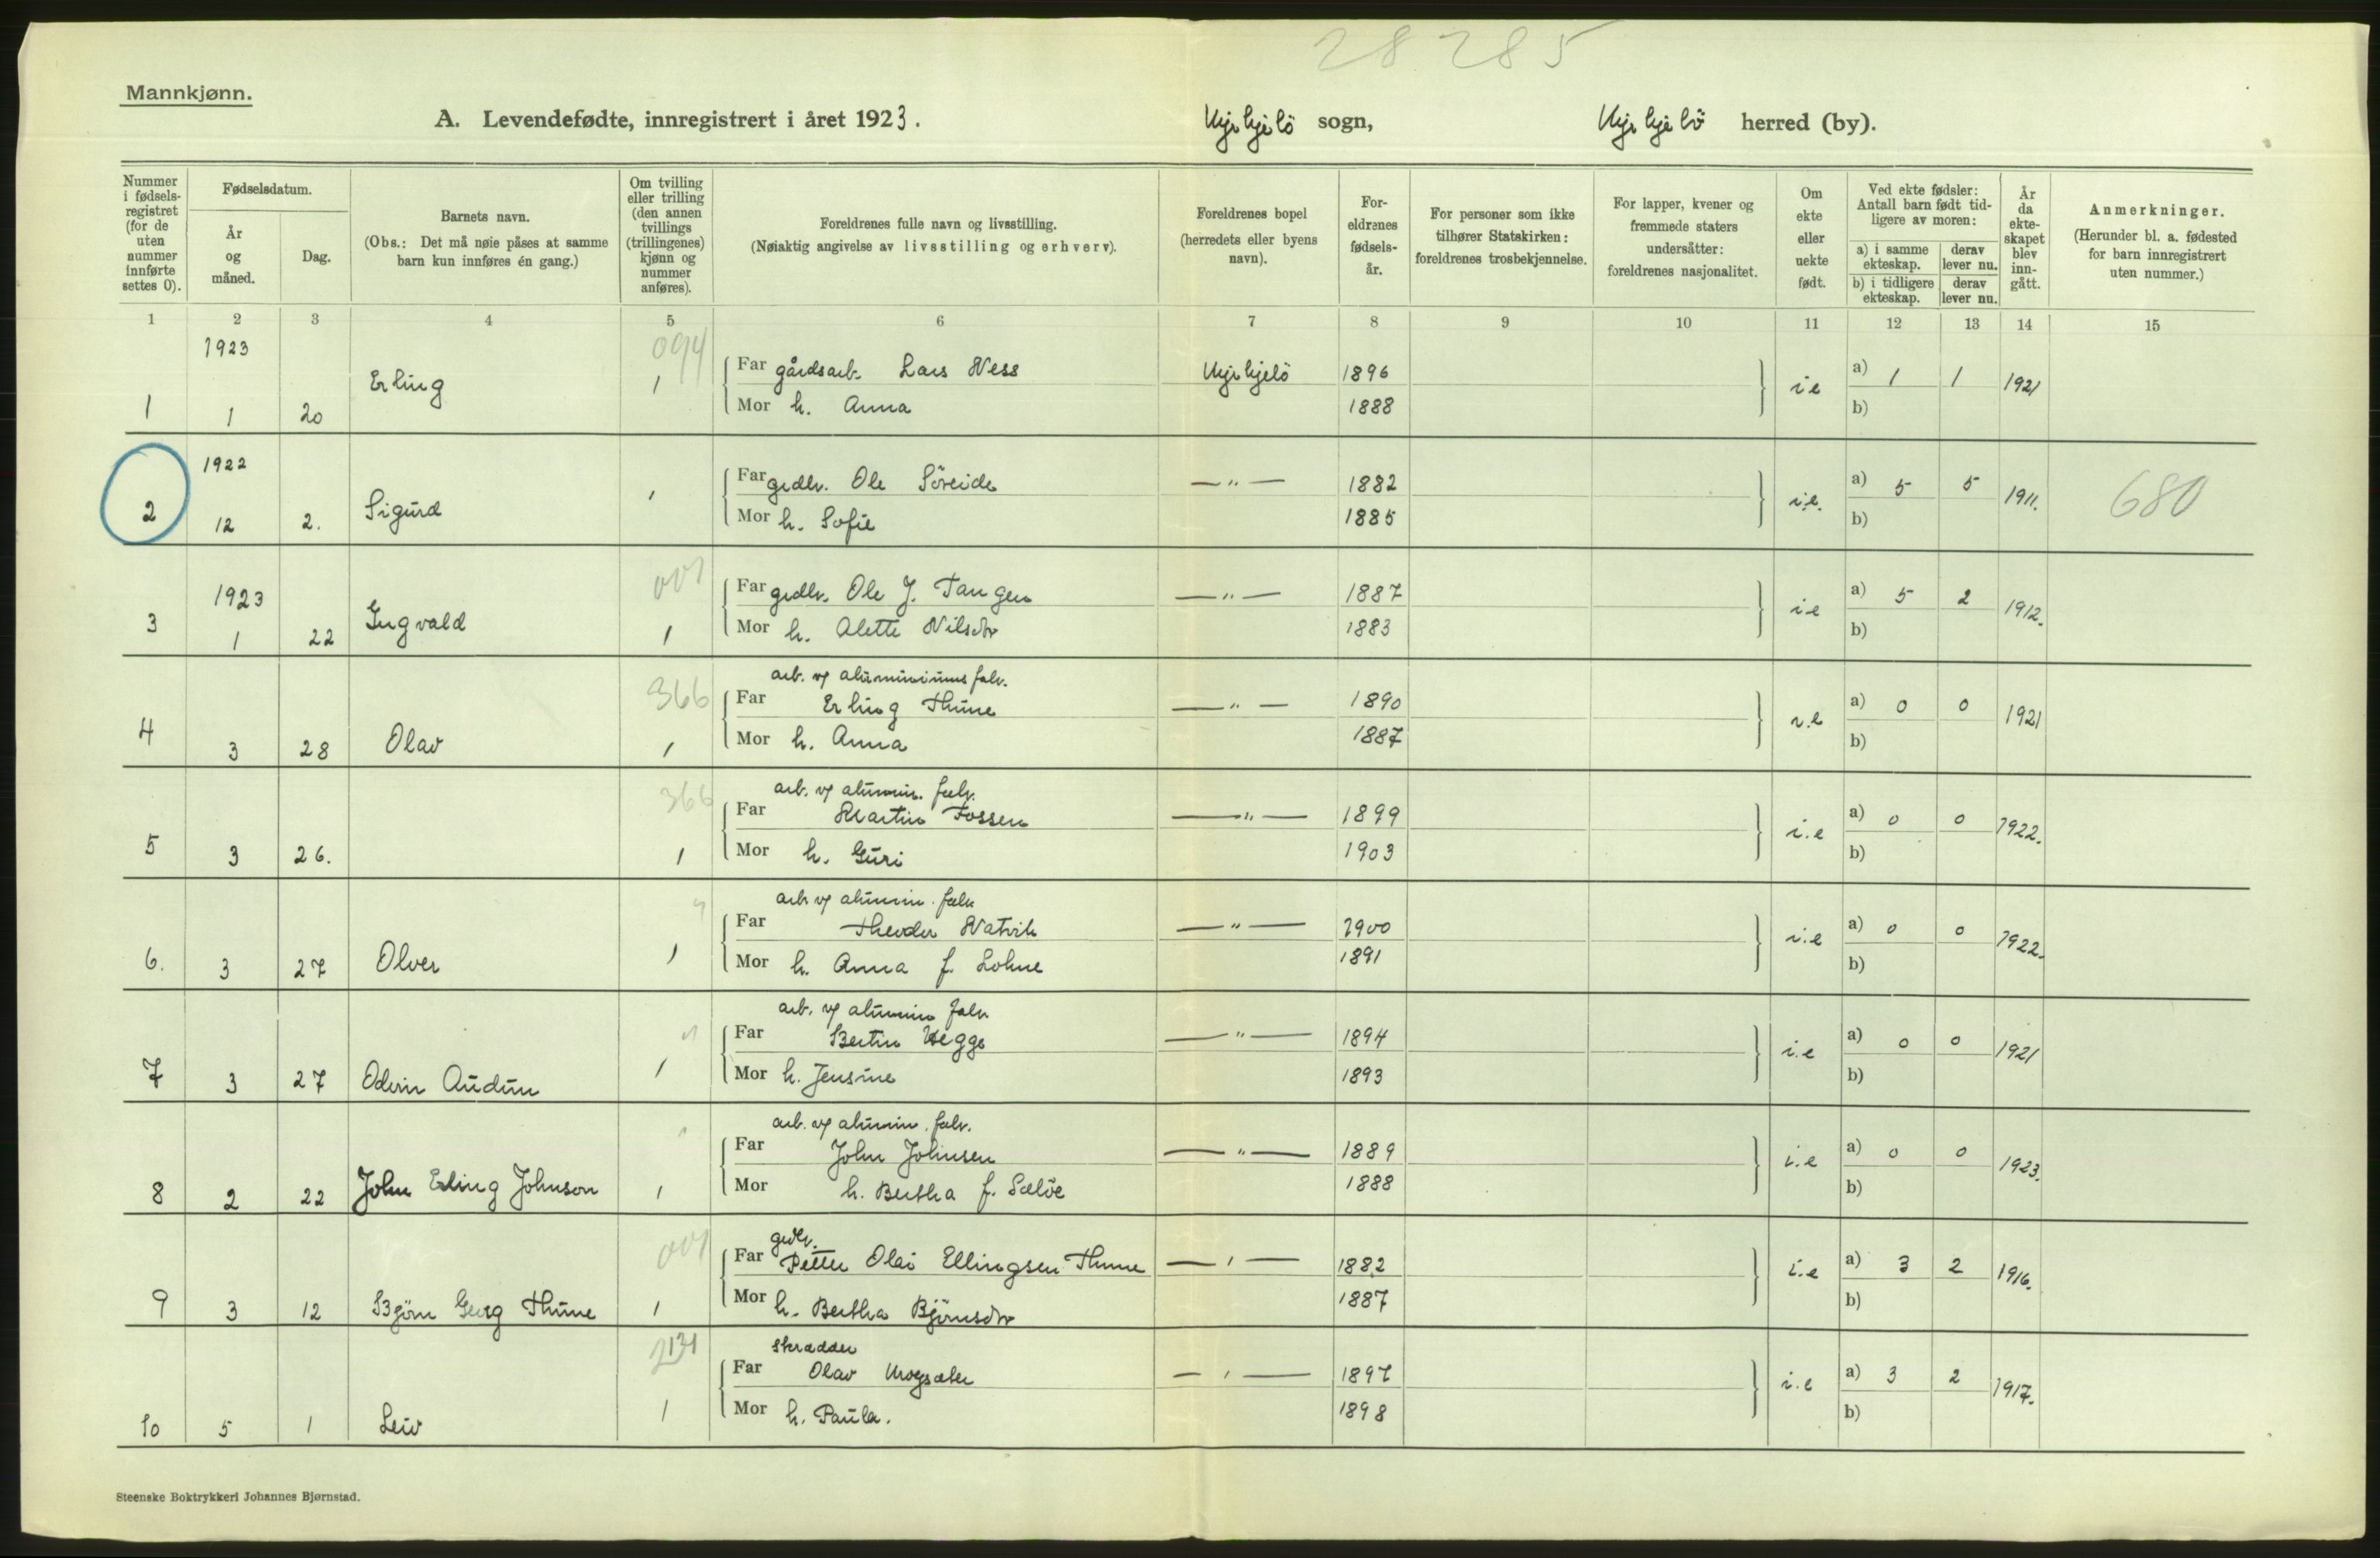 28285
Mannkjønn.
A. Levendefødte, innregistrert i året 1923. Kyrkjebö sogn, Kyrkjebö herred (by).
Nummer i fødsels-registret (for de uten nummer innførte settes 0).
Fødselsdatum.
År og måned.
Dag.
Barnets navn.
(Obs.: Det må nøie påses at samme barn kun innføres én gang.)
Om tvilling eller trilling (den annen tvillings (trillingenes) kjønn og nummer anføres).
Foreldrenes fulle navn og livsstilling.
(Nøiaktig angivelse av livsstilling og erhverv).
Foreldrenes bopel (herredets eller byens navn).
For-eldrenes fødsels-år.
For personer som ikke tilhører Statskirken: foreldrenes trosbekjennelse.
For lapper, kvener og fremmede staters undersåtter: foreldrenes nasjonalitet.
Om ekte eller uekte født.
Ved ekte fødsler: Antall barn født tid-ligere av moren:
a) i samme ekteskap. derav lever nu.
b) i tidligere ekteskap. derav lever nu.
År da ekte-skapet blev inn-gått.
Anmerkninger.
(Herunder bl. a. fødested for barn innregistrert uten nummer.)
1 2 3 4 5 6 7 8 9 10 11 12 13 14 15
1923 094
Far gårdsarb. Lars Ness Kyrkjebö 1896 a) 1 1
1 1 20 Erling 1 i e 1921
Mor h. Anna 1888 b)
1922
Far grdbr. Ole Söreide — " — 1882 a) 5 5
2 12 2. Sigurd 1 i.e. 1911. 680
Mor h. Sofie 1885 b)
1923 001
Far grdbr. Ole J. Tangen — " — 1887 a) 5 2
3 1 22 Ingvald 1 i e 1912.
Mor h. Alette Nilsdtr 1883 b)
366 arb. v/ aluminiums fabr.
Far Erling Thune — " — 1890 a) 0 0
4 3 28 Olav 1 i.e 1921
Mor h. Anna 1887 b)
366 arb. v/ alumin. fabr.
Far Martin Fossen — " — 1899 a) 0 0
5 3 26. 1 i.e 1922.
Mor h. Guri 1903 b)
" arb v/ alumin. fabr
Far Theodor Natvik — " — 1900 a) 0 0
6. 3 27 Olver 1 i.e 1922.
Mor h. Anna f. Lohne 1891 b)
" arb. v/ alumin fabr.
Far Bertin Hegge — " — 1894 a) 0 0
7 3 27 Odvin Audun 1 i.e 1921
Mor h. Jensine 1893 b)
" arb. v/ alumin. fabr.
Far John Johnsen — " — 1889 a) 0 0
8 2 22 John Erling Johnson 1 i.e 1923.
Mor h. Bertha f. Sæløe 1888 b)
001 grdbr.
Far Petter Olai Ellingsen Thune — " — 1882 a) 3 2
9 3 12 Björn Georg Thune 1 i.e 1916.
Mor h. Bertha Björnsdtr 1887 b)
skrædder
Far Olav — " — 1897 a) 3 2
10 5 1 Leiv 1 i.e 1917.
Mor h. Paula. 1898 b)
Steenske Boktrykkeri Johannes Bjørnstad.